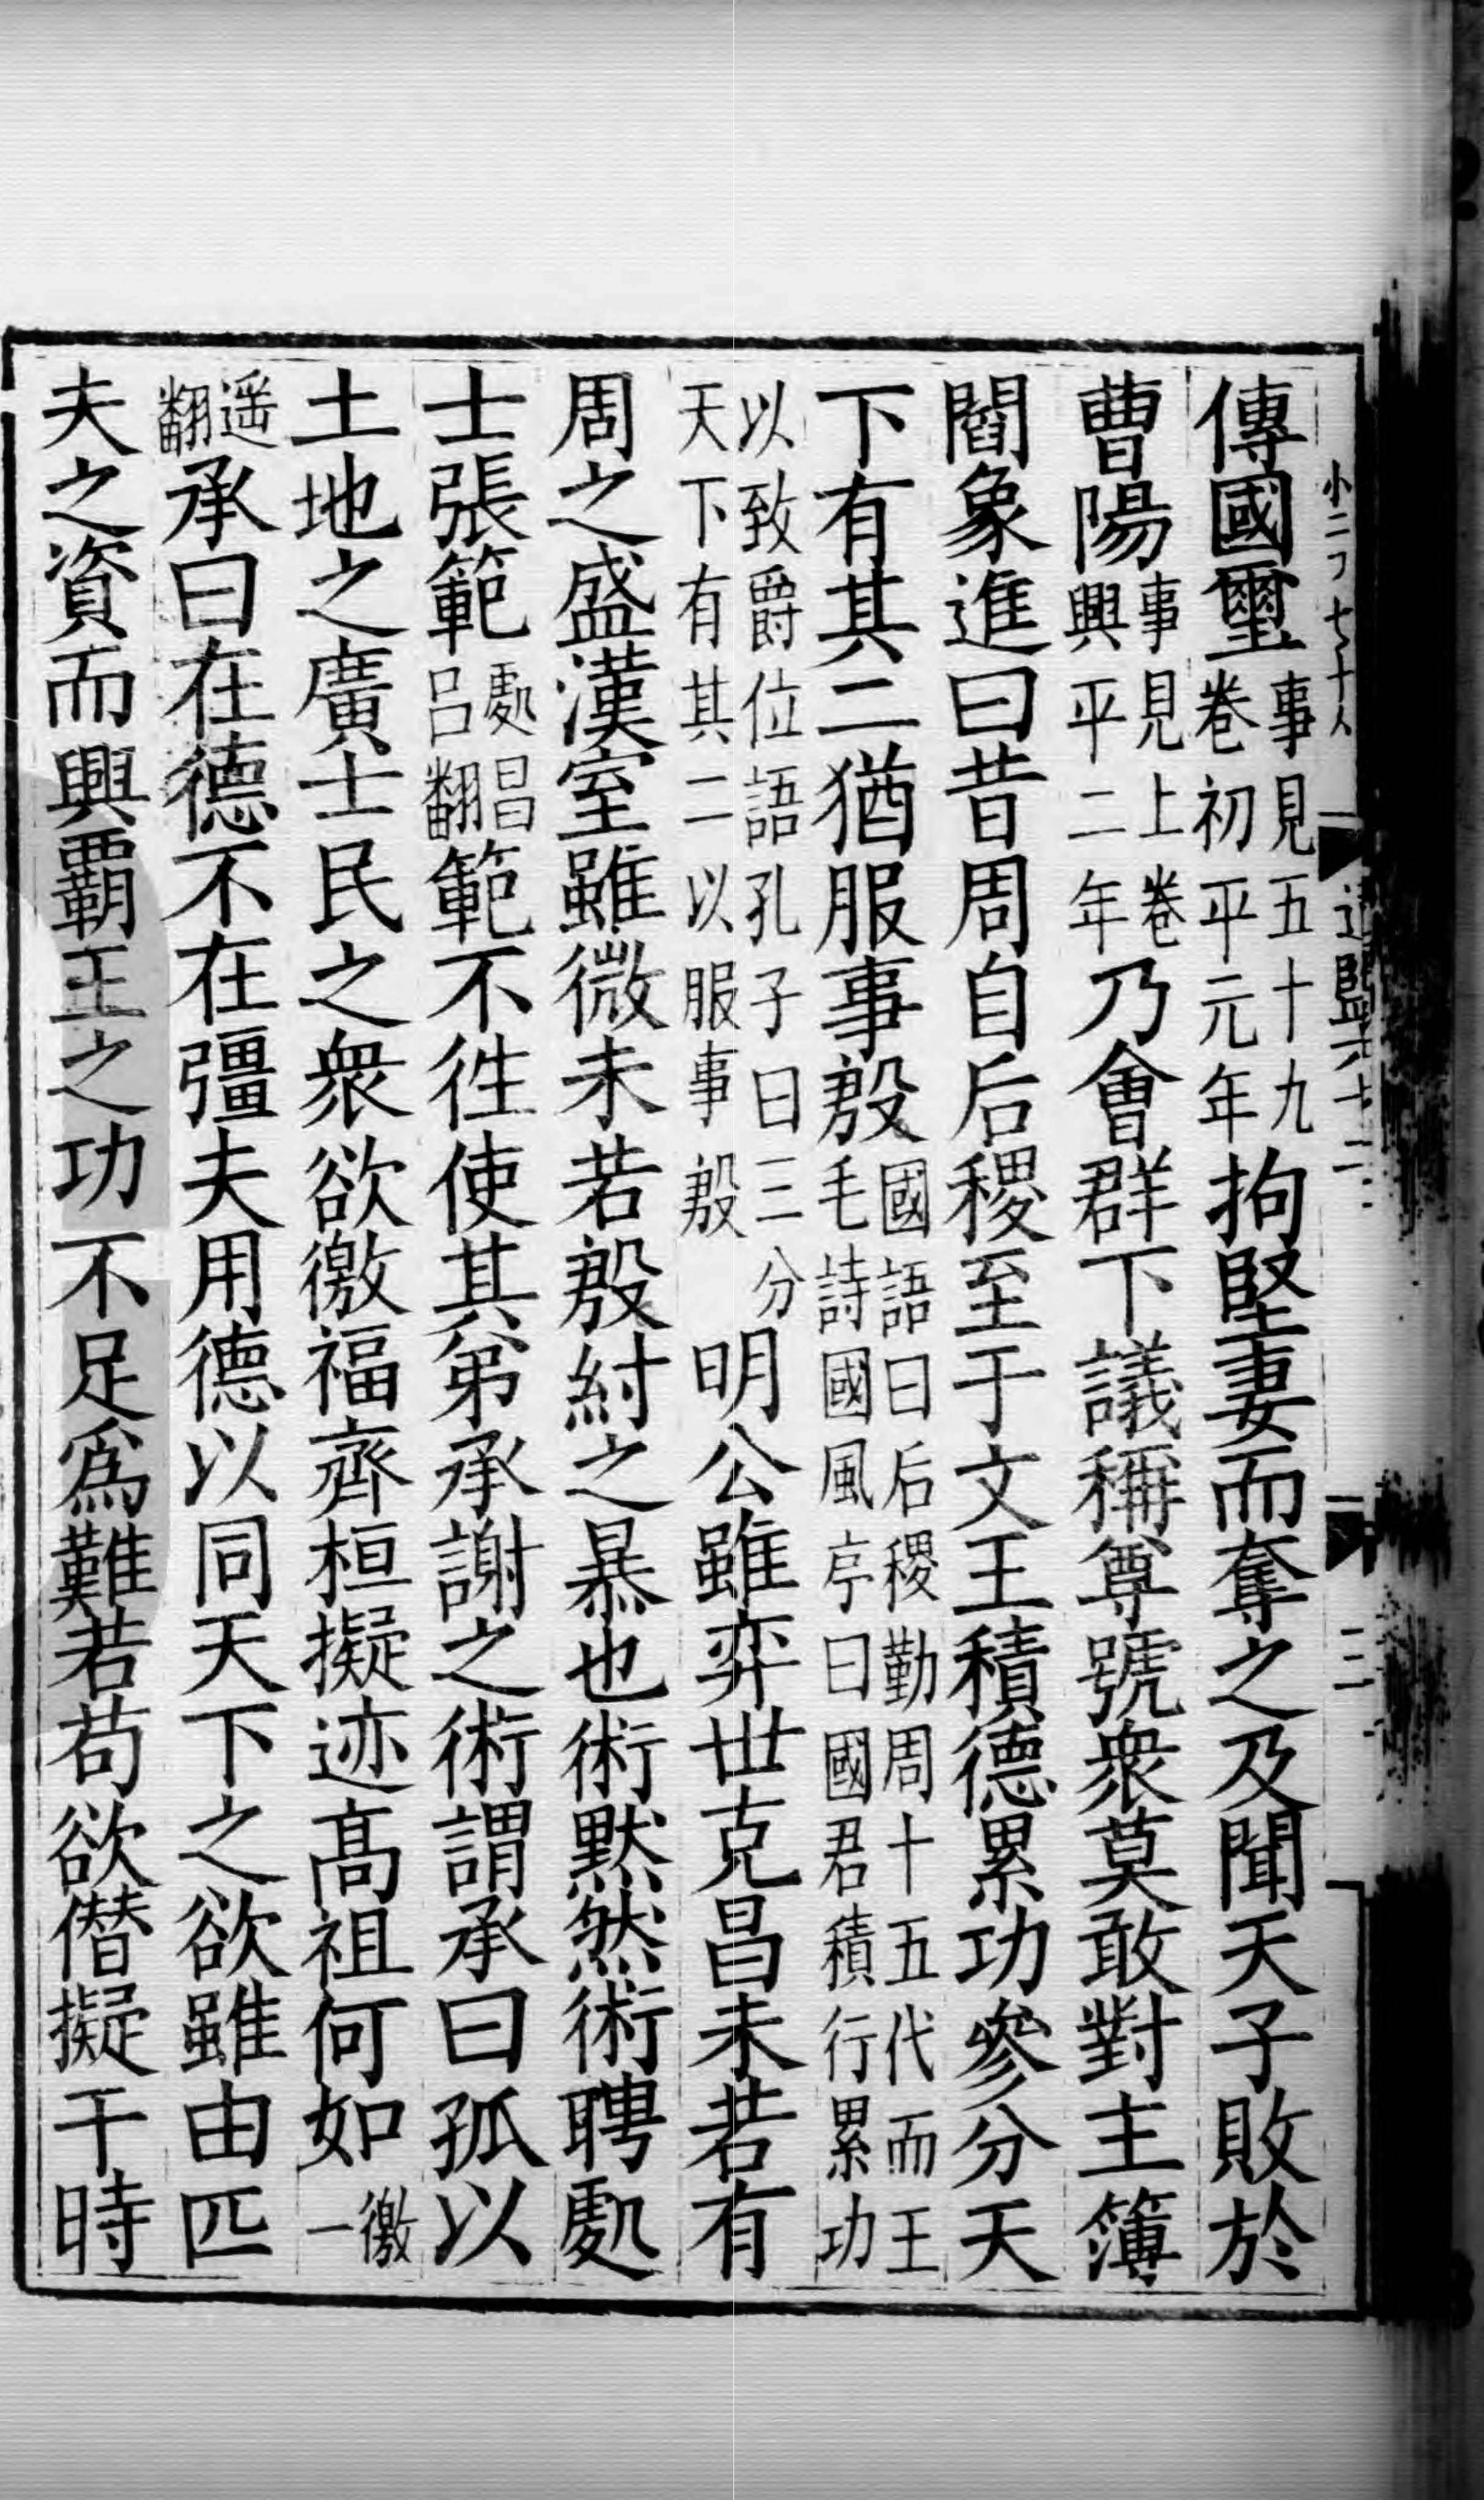 傳國璽事見五十九卷初平元年拘堅妻而奪之及聞天子敗於
曹陽事見上卷興平二年乃會群下議稱尊號衆莫敢對主簿
閻象進曰昔周自后稷至于文王積德累功參分天
下有其二猶服事殷國語曰后稷勤周十五代而王毛詩國風序曰國君積行累功
以致爵位語孔子曰三分天下有其二以服事殷明公雖弈世克昌未若有
周之盛漢室雖微未若殷紂之暴也術默然術聘處
士張範處昌呂翻範不往使其弟承謝之術謂承曰孤以
土地之廣士民之衆欲徼福齊桓擬迹高祖何如徼一
遥翻承曰在德不在彊夫用德以同天下之欲雖由匹
夫之資而興霸王之功不足爲難若苟欲僭擬干時